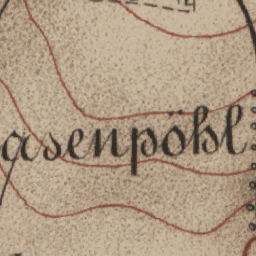 asenpöhl